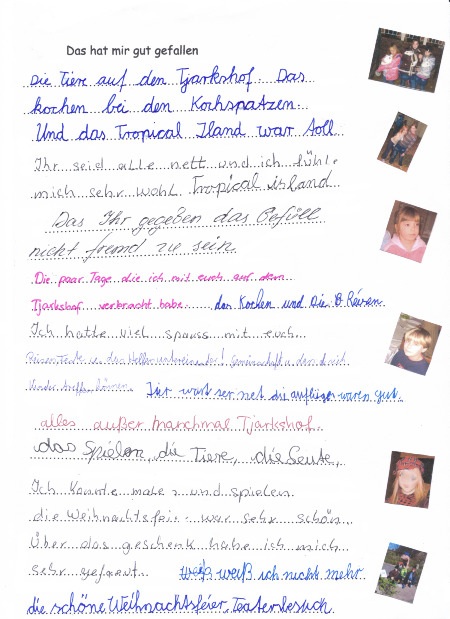 Das hat mir gut gefallen
Die Tiere auf den Tjarkshof. Das
kochen bei den Kochspatzen.
Und das Tropical Iland war toll
Ihr seid alle nett und ich fühle
mich sehr wohl Tropical island
Das Ihr gegeben das Gefüll
nicht fremd zu sein.
Die paar Tage die ich mit euch auf dem
Tjarkshof verbracht habe das Kochen und Die
Ich hatte viel spass mit euch
Kinder treffen können. Ihr wart ser net die aufluger waren gut.
alles außer manchmal Tjarkshof
das Spielen, die Tiere, die Leute,
Ich konnte malen und spielen
die Weihnachtsfeier war sehr schön
Über das geschenk habe ich mich
sehr gefreut. weiß ich nicht mehr
die schöne Weihnachtsfeier, Teaterbesuch